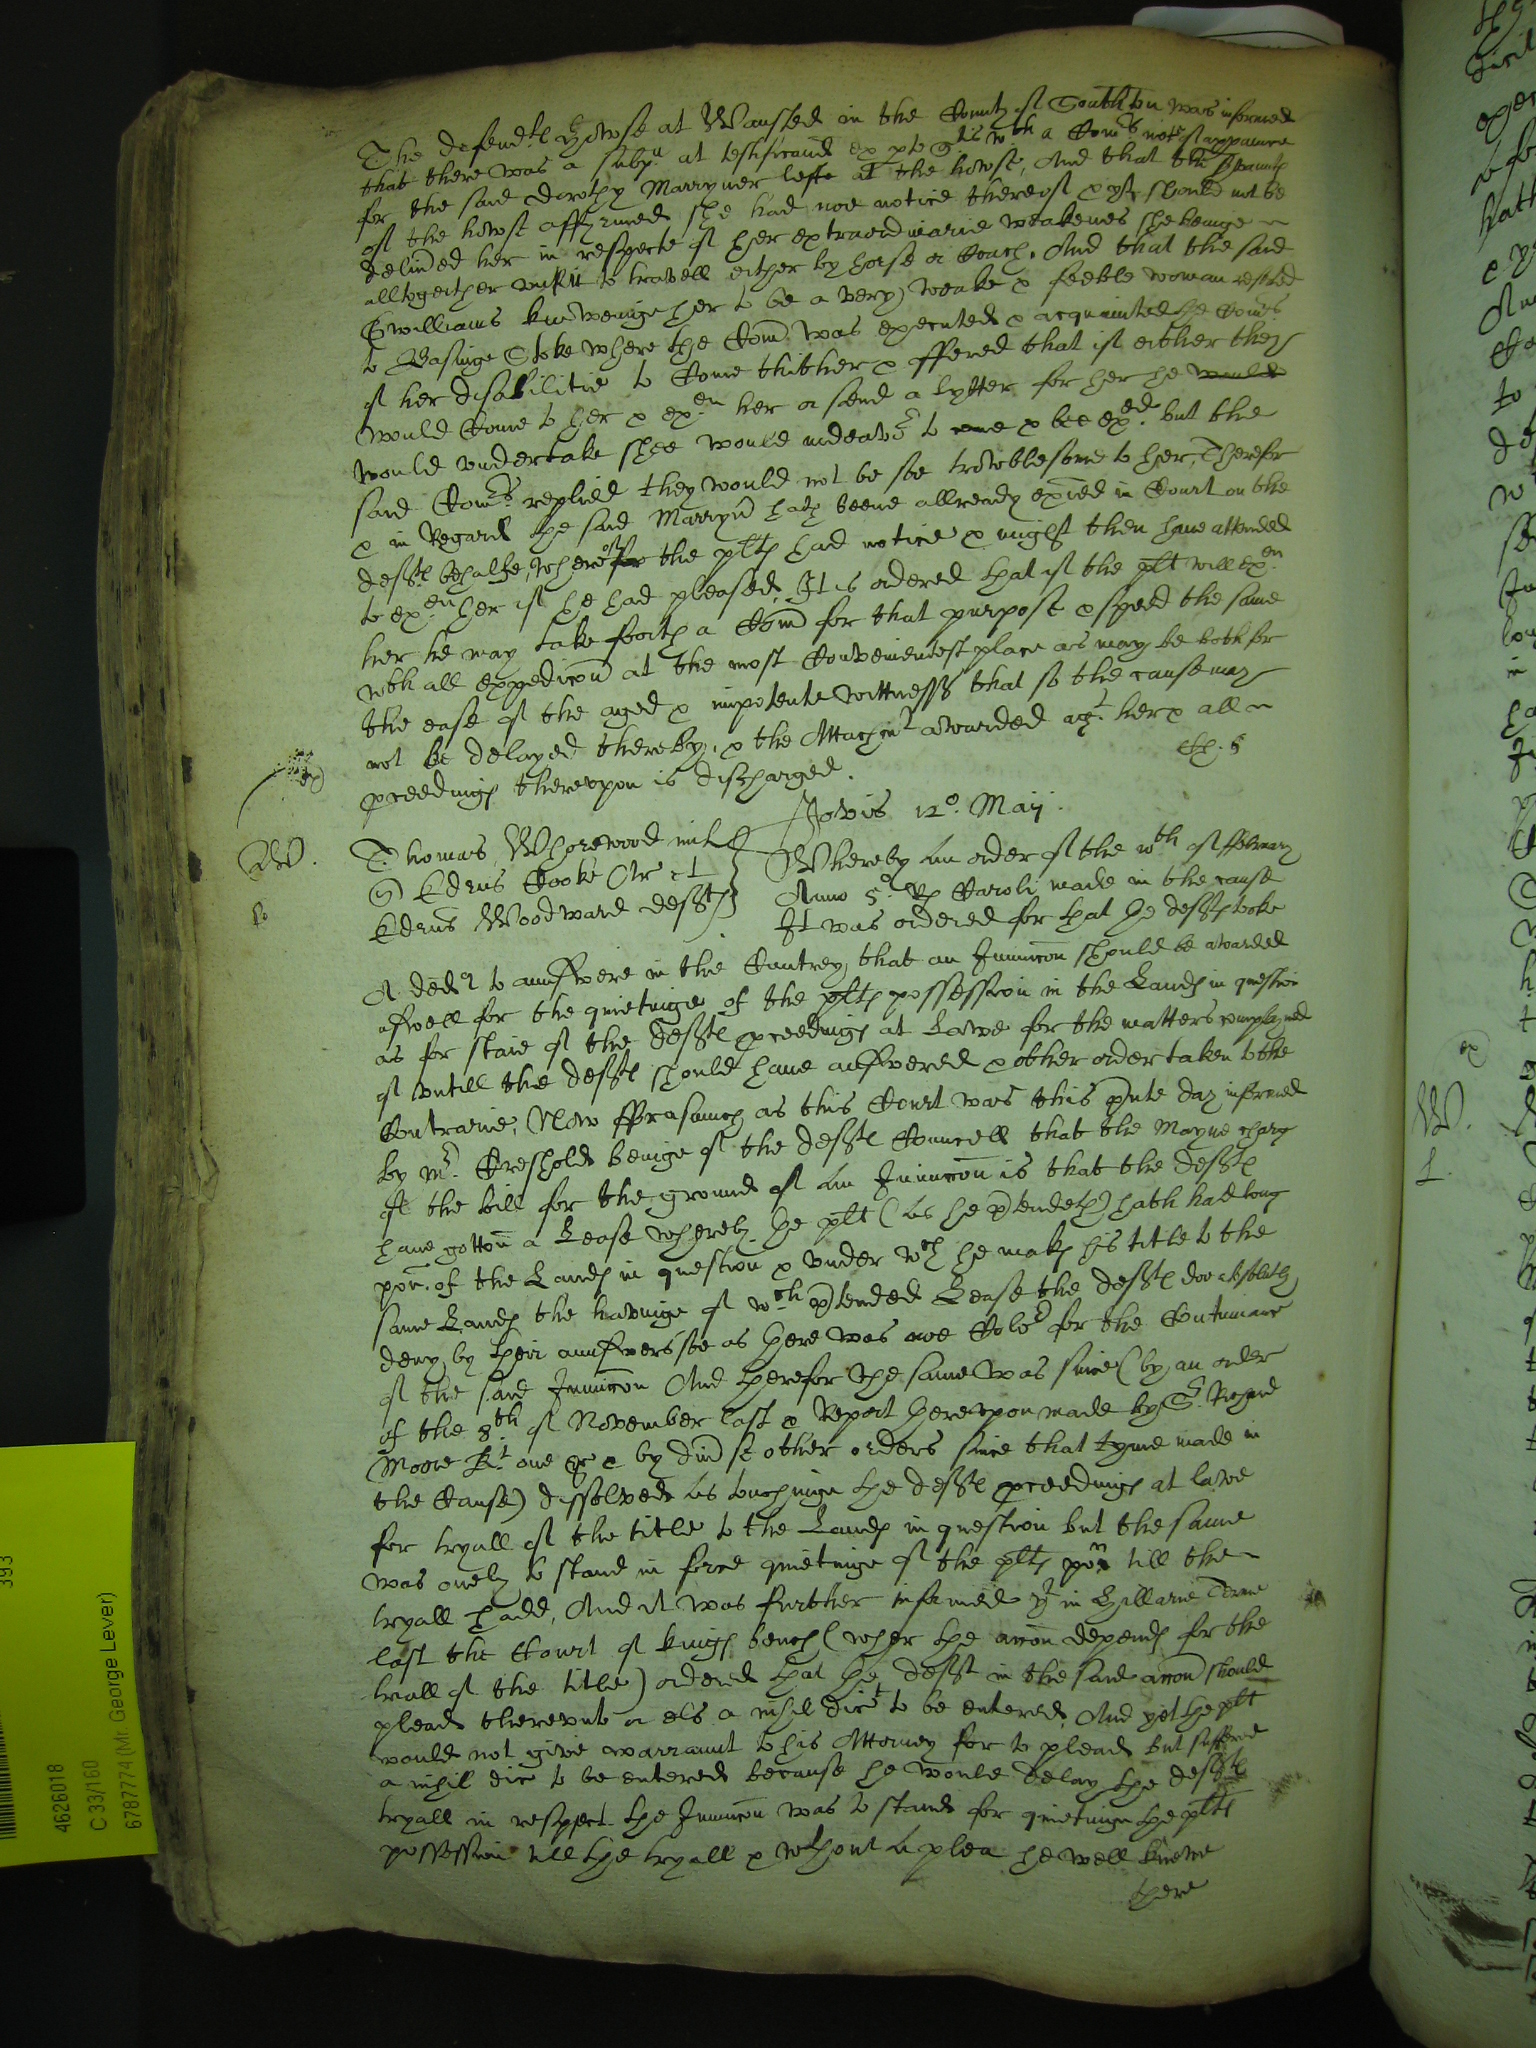 The defendtes howse at Wansted in the County of Southton was informed
that there was a subpa ad testificand ex pte Qtis wth a Comrs note of appaunce
for the said Dorothy Marryner lefte at the howse, And that the servants
of the howse affyrmed she had noe notice thereof & yt should not be
delived her in respecte of her extraordinarie weakenes she beinge
alltogeither unfitt to travell either by horse or Coach. And that the said
Gwilliams knoweinge her to be a very weake & feeble woman
to Basinge Stoke where the Com was executed & acquainted the Comrs
of her disabilitie to Come thither & offered that if either they
would Come to her & exen her or send a lytter for her he would
would undertake shee would indeavor to come & bee exed. but the
said Comrs replied they would not be soe troublesome to her, Therefore
& in Regard the said Marrynr hath beene allready exied in Court on the
defts behalfe, whereof for the plts had notice & might then have attended
to exen her if he had pleased, It is ordered that if the plt will exen
her he may take forth a Com for that purpose & speed the same
wth all expedicon at the most Convenientest place as may be both for
the ease of the aged & impotente wittness that so the cause may
not be delayed thereby, & the Attachmt awarded agt. her & all
pceedings thereupon is discharged.
Jovis 12o. Maij.
Thomas Whorewood mil
Q Edrus Cooke Ar et
Edrus Woodward defts
Whereby an order of the 10th of ffebruary
Anno 5o Rs Caroli made in the cause
It was ordered for that the defts tooke
A ded to annswere in the Cuntrey, that an Iniuncon should be awarded
aswell for the quietinge of the plts possession in the Lands in question
as for staie of the defts pceedings at Lawe for the matters complayned
of untill the defts should have answered & other order taken to the
Contrarie, Now fforasmuch as this Court was this pnte day informed
by Mr. Creshold beinge of the defts Councell that the mayne charg
of the bill for the ground of an Iniuncon is that the defts
have gotten a Lease whereby the plt (as he ptendeth) hath had long
pon. of the Lands in question & under wch he maks his title to the
same Lands the havinge of wch ptended Lease the defts doe absolutely
deny by their annswers soe as there was noe Color for the Contynuance
of the said Iniuncon And therefore the same was since (by an order
of the 8th of November last & Report thereupon made by Sr. Richard
Moore Kt. one &c & by divs other orders since that tyme made in
the Cause) dissolved as touchinge the defts pceedings at lawe
for tryall of the title to the Lands in question but the same
was onely to stand in force quietinge of the plts pon till the
tryall hadd, And it was further informed yt in Hillarie Terme
last the Court of kings bench (wher the accon depends for the
triall of the title) ordered that the deft in the said accon should
plead thereunto or els a nihil dict to be entered, And yet the plt
would not give warrannt to his Attorney for to plead but suffered
a nihil dic to be entered because he would delay the defts
tryall in respect the Iniuncon was to stand for quietinge the plts
possession till the tryall & wthout a plea he well knewe
there
4626018
C 33/160
6787774 (Mr. George Lever)
393